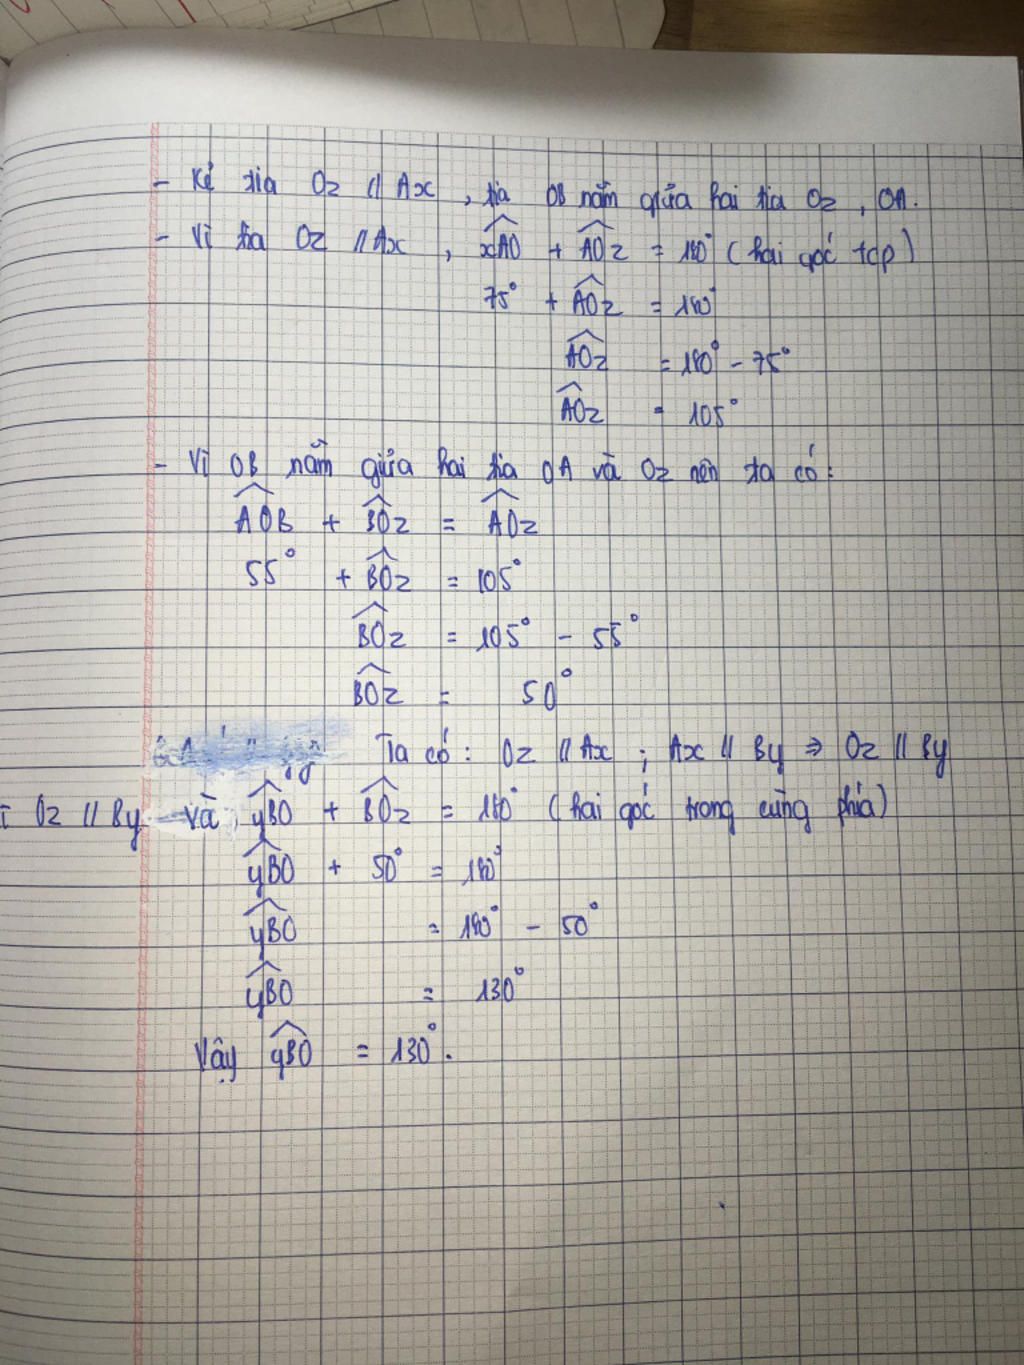 - Kẻ tia Oz // Ax , tia OB nằm giữa hai tia Oz , OA.
- Vì tia Oz // Ax , xAO + AOz = 180° ( hai góc tcp )
75° + AOz = 180°
AOz = 180° - 75°
AOz = 105°
- Vì OB nằm giữa hai tia OA và Oz nên ta có:
AOB + BOz = AOz
55° + BOz = 105°
BOz = 105° - 55°
BOz = 50°
Ta có : Oz // Ax ; Ax // By ⇒ Oz // By
Oz // By và yBO + BOz = 180° ( hai góc trong cùng phía )
yBO + 50° = 180°
yBO = 180° - 50°
yBO = 130°
Vậy yBO = 130°.